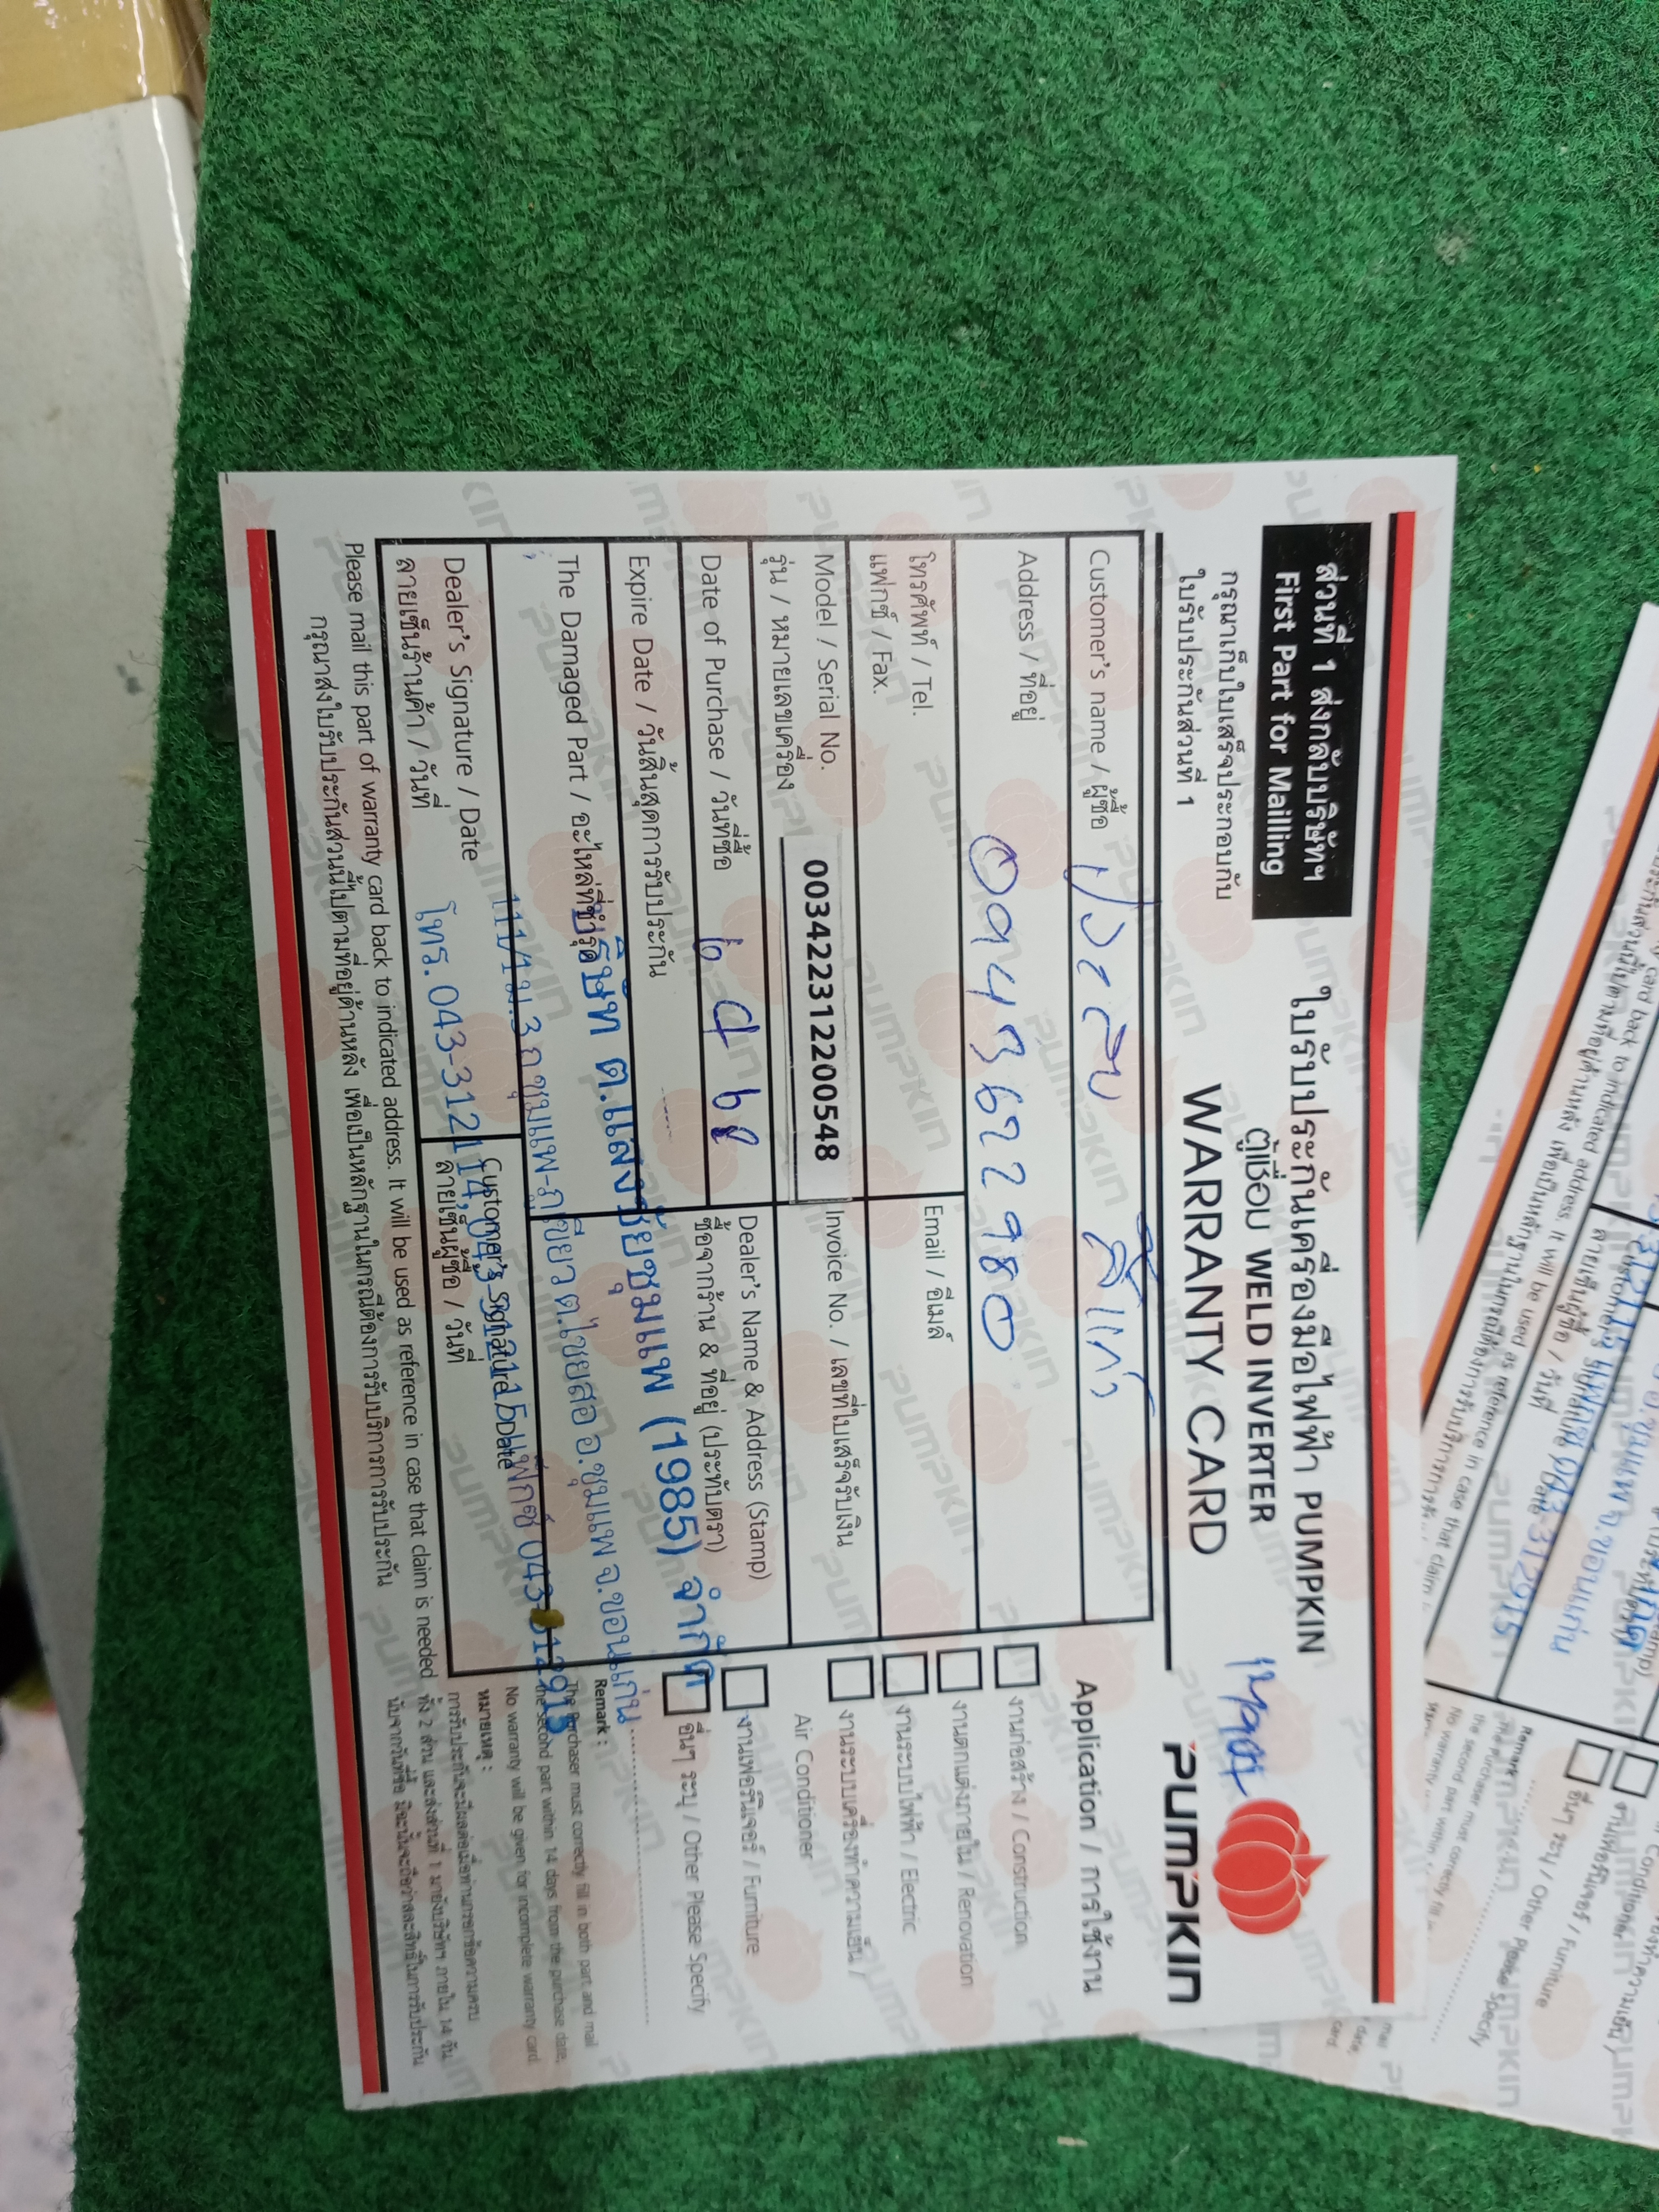 ส่วนที่ 1 ส่งกลับบริษัทฯ
First Part for Mailling
กรุณาเก็บใบเสร็จประกอบกับ
ใบรับประกันส่วนที่ 1
ใบรับประกันเครื่องมือไฟฟ้า PUMPKIN
ตู้เชื่อม WELD INVERTER
WARRANTY CARD
PUMPKIN
Customer's name / ผู้ซื้อ
Address / ที่อยู่
0943622980
โทรศัพท์ / Tel.
แฟกซ์ / Fax.
Email / อีเมล์
Model / Serial No.
รุ่น / หมายเลขเครื่อง
003422312200548
Invoice No. / เลขที่ใบเสร็จรับเงิน
Date of Purchase / วันที่ซื้อ
6 4 68
Dealer's Name & Address (Stamp)
ซื้อจากร้าน & ที่อยู่ (ประทับตรา)
Expire Date / วันสิ้นสุดการรับประกัน
The Damaged Part / อะไหล่ที่ชำรุด
บริษัท ต.แสงชัยชุมแพ (1985) จำกัด
111/1 ม.3 ถ.ชุมแพ-ภูเขียว ต.ไชยสอ อ.ชุมแพ จ.ขอนแก่น
โทร. 043-312114, 043-312115 แฟกซ์ 043-312915
Dealer's Signature / Date
ลายเซ็นร้านค้า / วันที่
Customer's Signature / Date
ลายเซ็นผู้ซื้อ / วันที่
Please mail this part of warranty card back to indicated address. It will be used as reference in case that claim is needed
กรุณาส่งใบรับประกันส่วนนี้ไปตามที่อยู่ด้านหลัง เพื่อเป็นหลักฐานในกรณีต้องการรับบริการการรับประกัน
Application / การใช้งาน
งานก่อสร้าง / Construction
งานตกแต่งภายใน / Renovation
งานระบบไฟฟ้า / Electric
งานระบบเครื่องทำความเย็น /
Air Conditioner
งานเฟอร์นิเจอร์ / Furniture
อื่นๆ ระบุ / Other Please Specify
Remark :
The Purchaser must correctly fill in both part and mail
the second part within 14 days from the purchase date,
No warranty will be given for incomplete warranty card.
หมายเหตุ :
การรับประกันจะมีผลต่อเมื่อท่านกรอกข้อความครบ
ทั้ง 2 ส่วน และส่งส่วนที่ 1 มายังบริษัทฯ ภายใน 14 วัน
นับจากวันที่ซื้อ มิฉะนั้นจะถือว่าสละสิทธิ์ในการรับประกัน